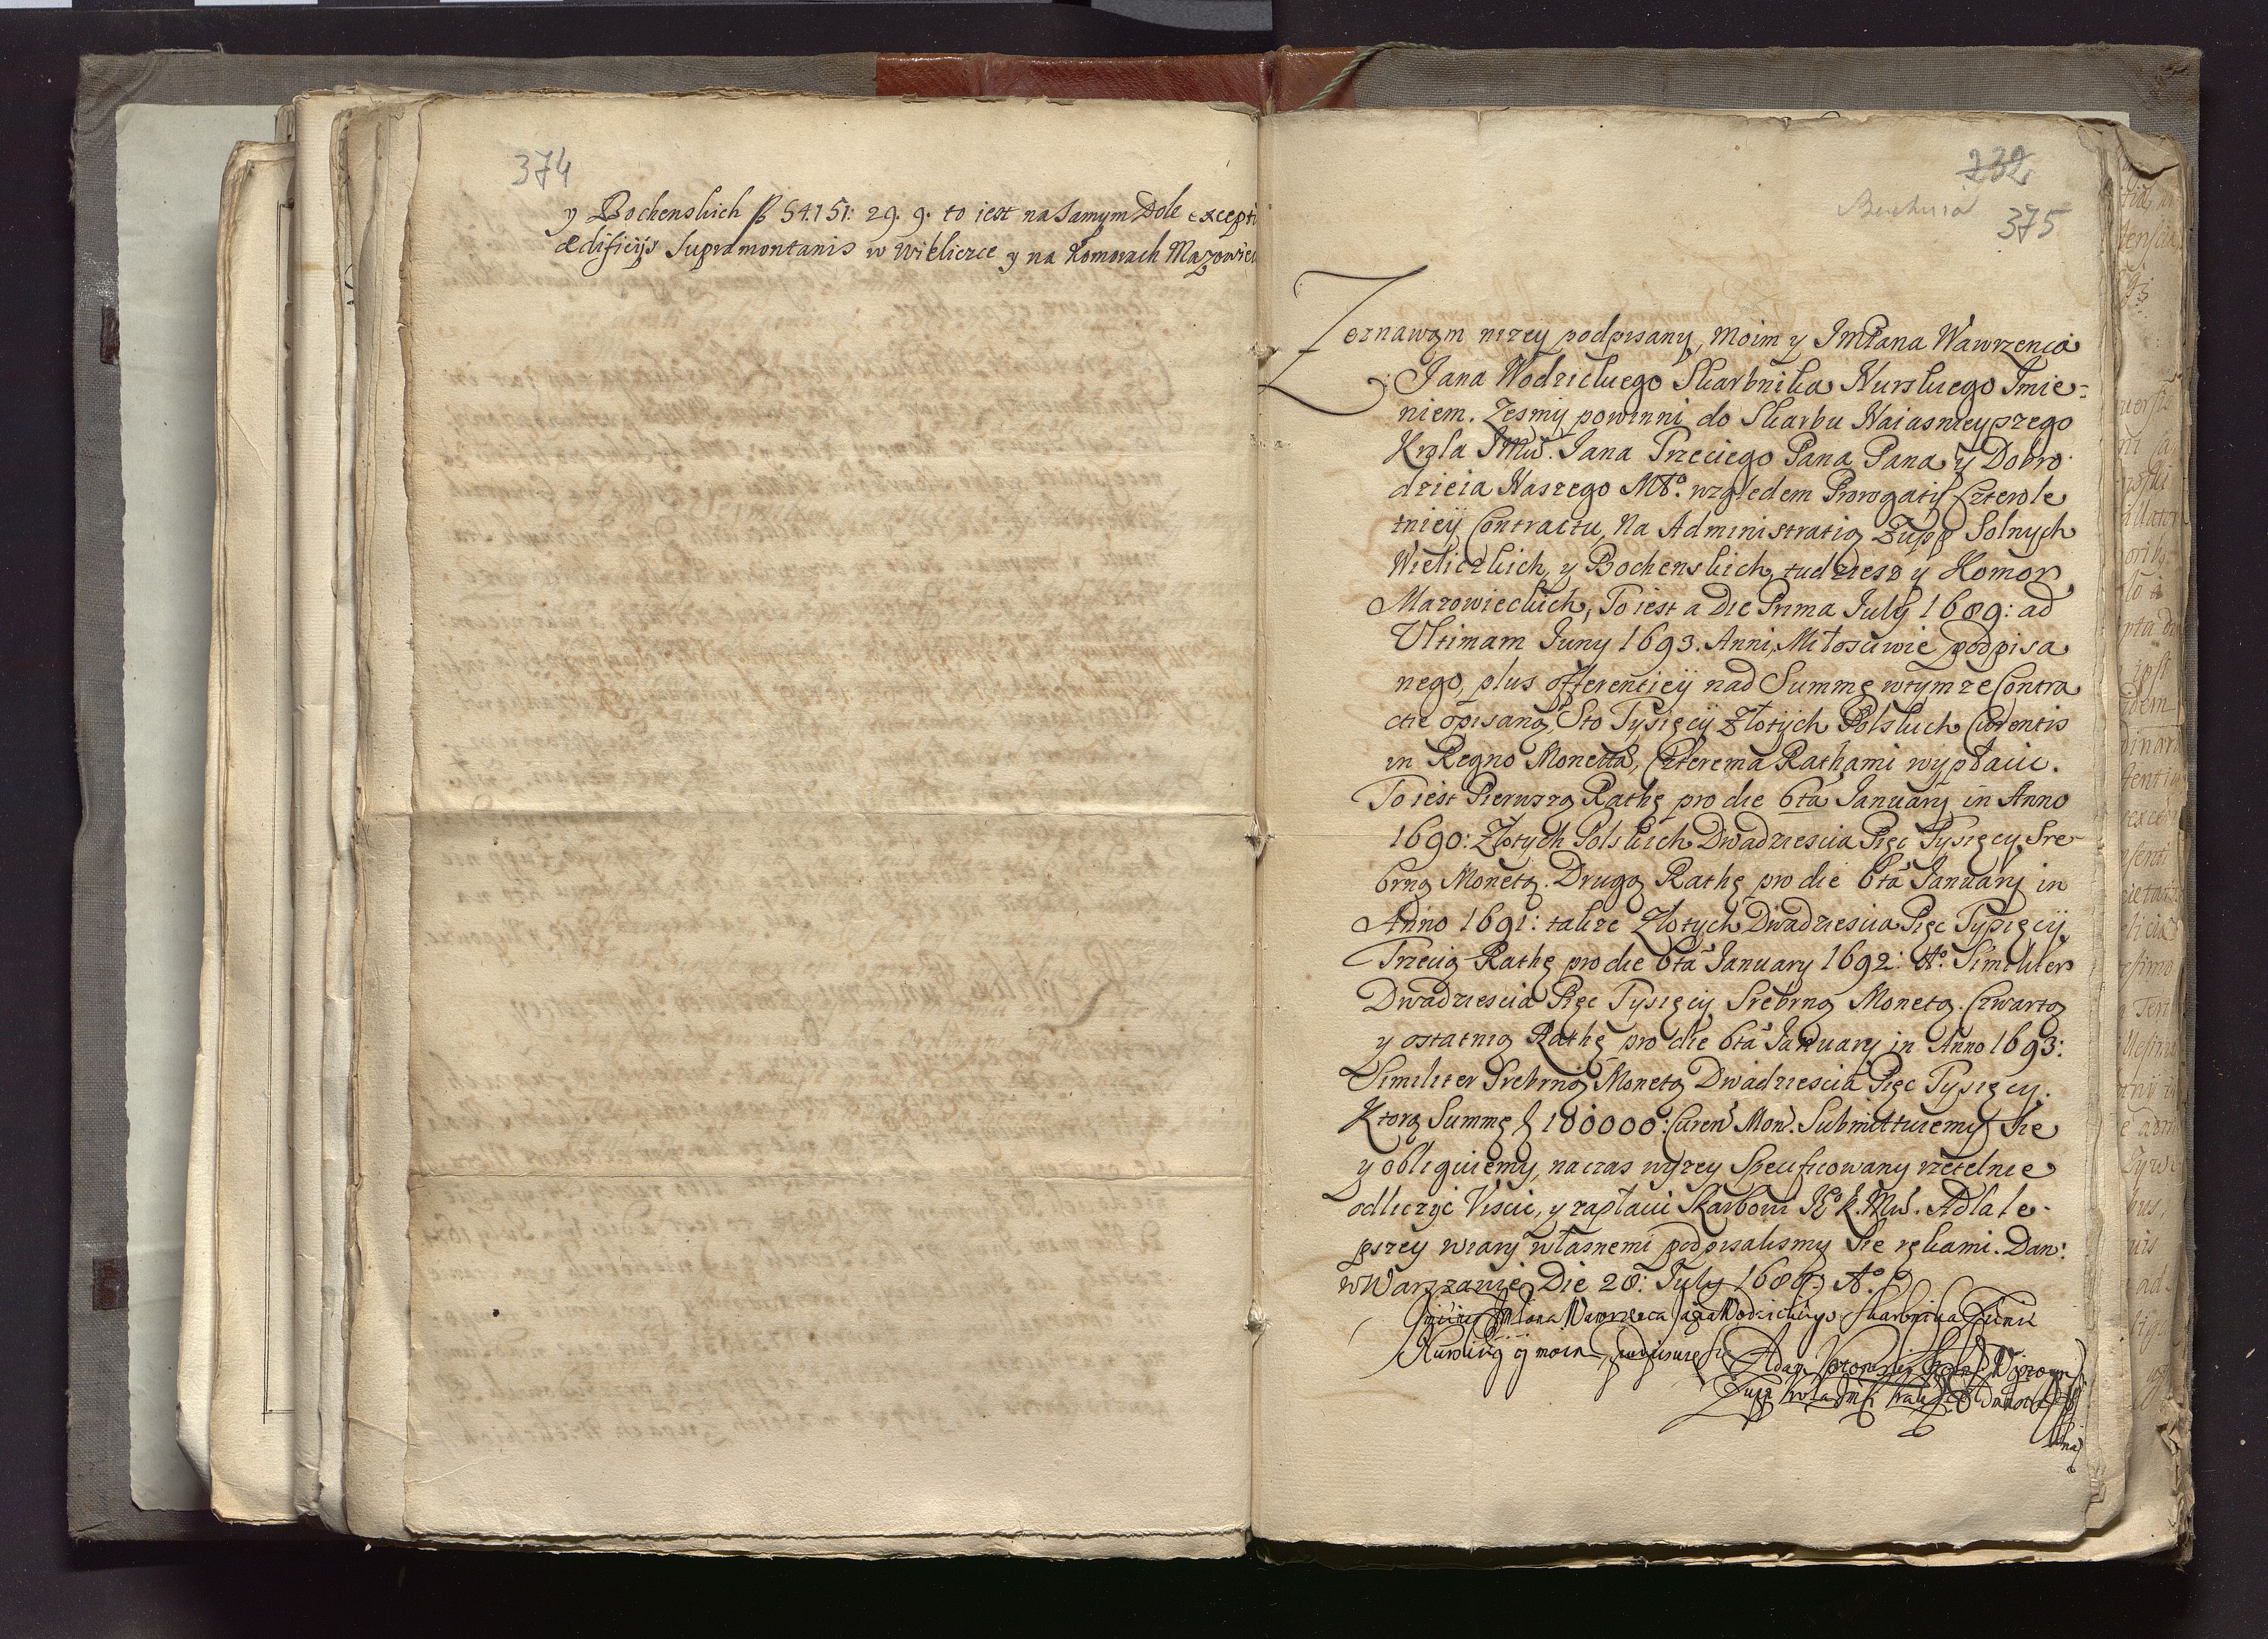 374
y Bochenskich ß 54151: 29. 9. to iest na samym Dole except
ædificijs supramontanis w Wieliczce y na Komorach Mazowiec
732
Buchnia
375
Zeznawam nizey podpisany, Moim y JmPana Wawrzenca
Jana Wodzickiego Skarbnika Nurskiego Jmie-
niem. Zesmy powinni do Skarbu Naiasnieyszego
Krola JMsi. Jana Trzeciego Pana Pana y Dobro
dzieia Naszego Mo. względem Prorogatij Czterole
tnieij Contractu, Na Administratią Zupp Solnych
Wielickich, y Bochenskich, tudziesz y Komor
Mazowieckich, To iest a Die Prima July 1689: ad
Vltimam Juny 1693. Anni, Miłosciwie podpisa
nego, plus offerentieij nad Summę wtymze Contra
ctie opisaną, Sto Tysięcy Złotych Polskich Curentis
in Regno Moneta, Czterema Rathami wypłacic.
To iest Pierwszą Rathę pro die 6ta January in Anno
1690: Złotych Polskich Dwadziescia Pięc Tysięcy Sre-
brną Monetą. Drugą Rathę pro die 6ta January in
Anno 1691: takze Złotych Dwadziescia Pięc Tysięcy
Trzecią Rathę pro die 6ta January 1692: Ao. Similiter
Dwadziescia Pięc Tysięcy Srebrną Monetą. Czwartą
y ostatnią Rathę pro die 6ta January in Anno 1693:
Similiter Srebrną Monetą Dwadziescia Pięc Tysięcy.
Ktorą Summę f 100000: Curen Mon. Submittuiemy Sie
y obliguiemy, na czas wyzey Specificowany rzetelnie
odliczyc Viscic, y zapłacic Skarbowi Jo K. Msi. A dla le-
pszey wiary własnemi podpisalismy Sie rękami. Dan:
w Warszawie Die 28: July 1689. Ao.
Jmieniem JmPana Wawrzenca Jana Wodzickiego Skarbnika Ziemie
Nurskiey y moim podpisuie sie Adam
Zupp